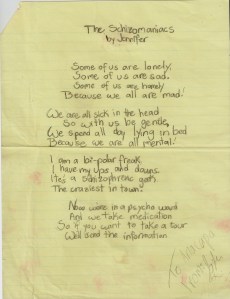 The Schizomaniacs
by Jennifer
Some of us are lonely,
Some of us are sad.
Some of us are
Because we all are mad!
We are all sick in the head
So with us be gentle,
We spend all day lying in bed
Because we are all mental!
I am a bi-polar freak,
I have my ups, and downs
He's a schizophrenic geek
The craziest in town!
Now were in a psycho ward
And we take medication
So if you want to take a tour
We'll send the information